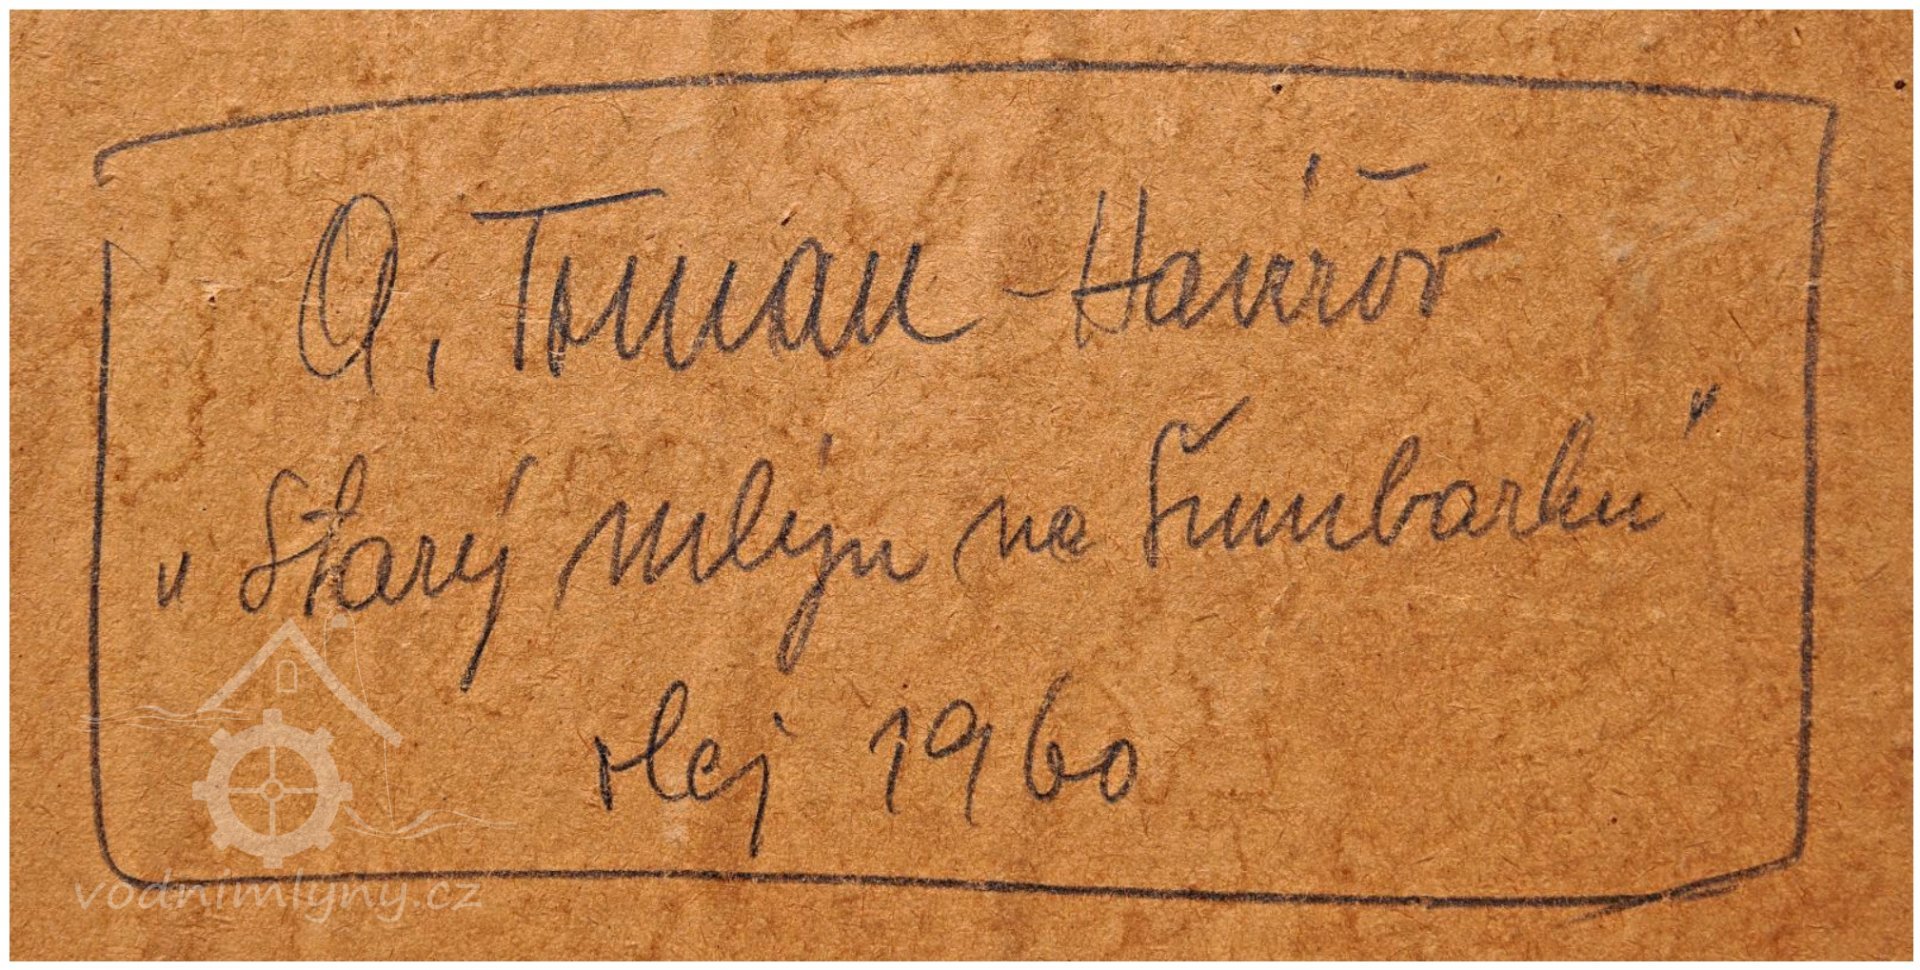 A. Toman - Havířov
"Starý mlýn na Šumbarku"
olej 1960
vodnimlyny.cz